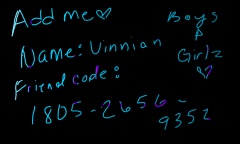 Add me♡
Name: Vinnian
Friend code:
1805-2656-
9352
Boys
&
Girlz
♡